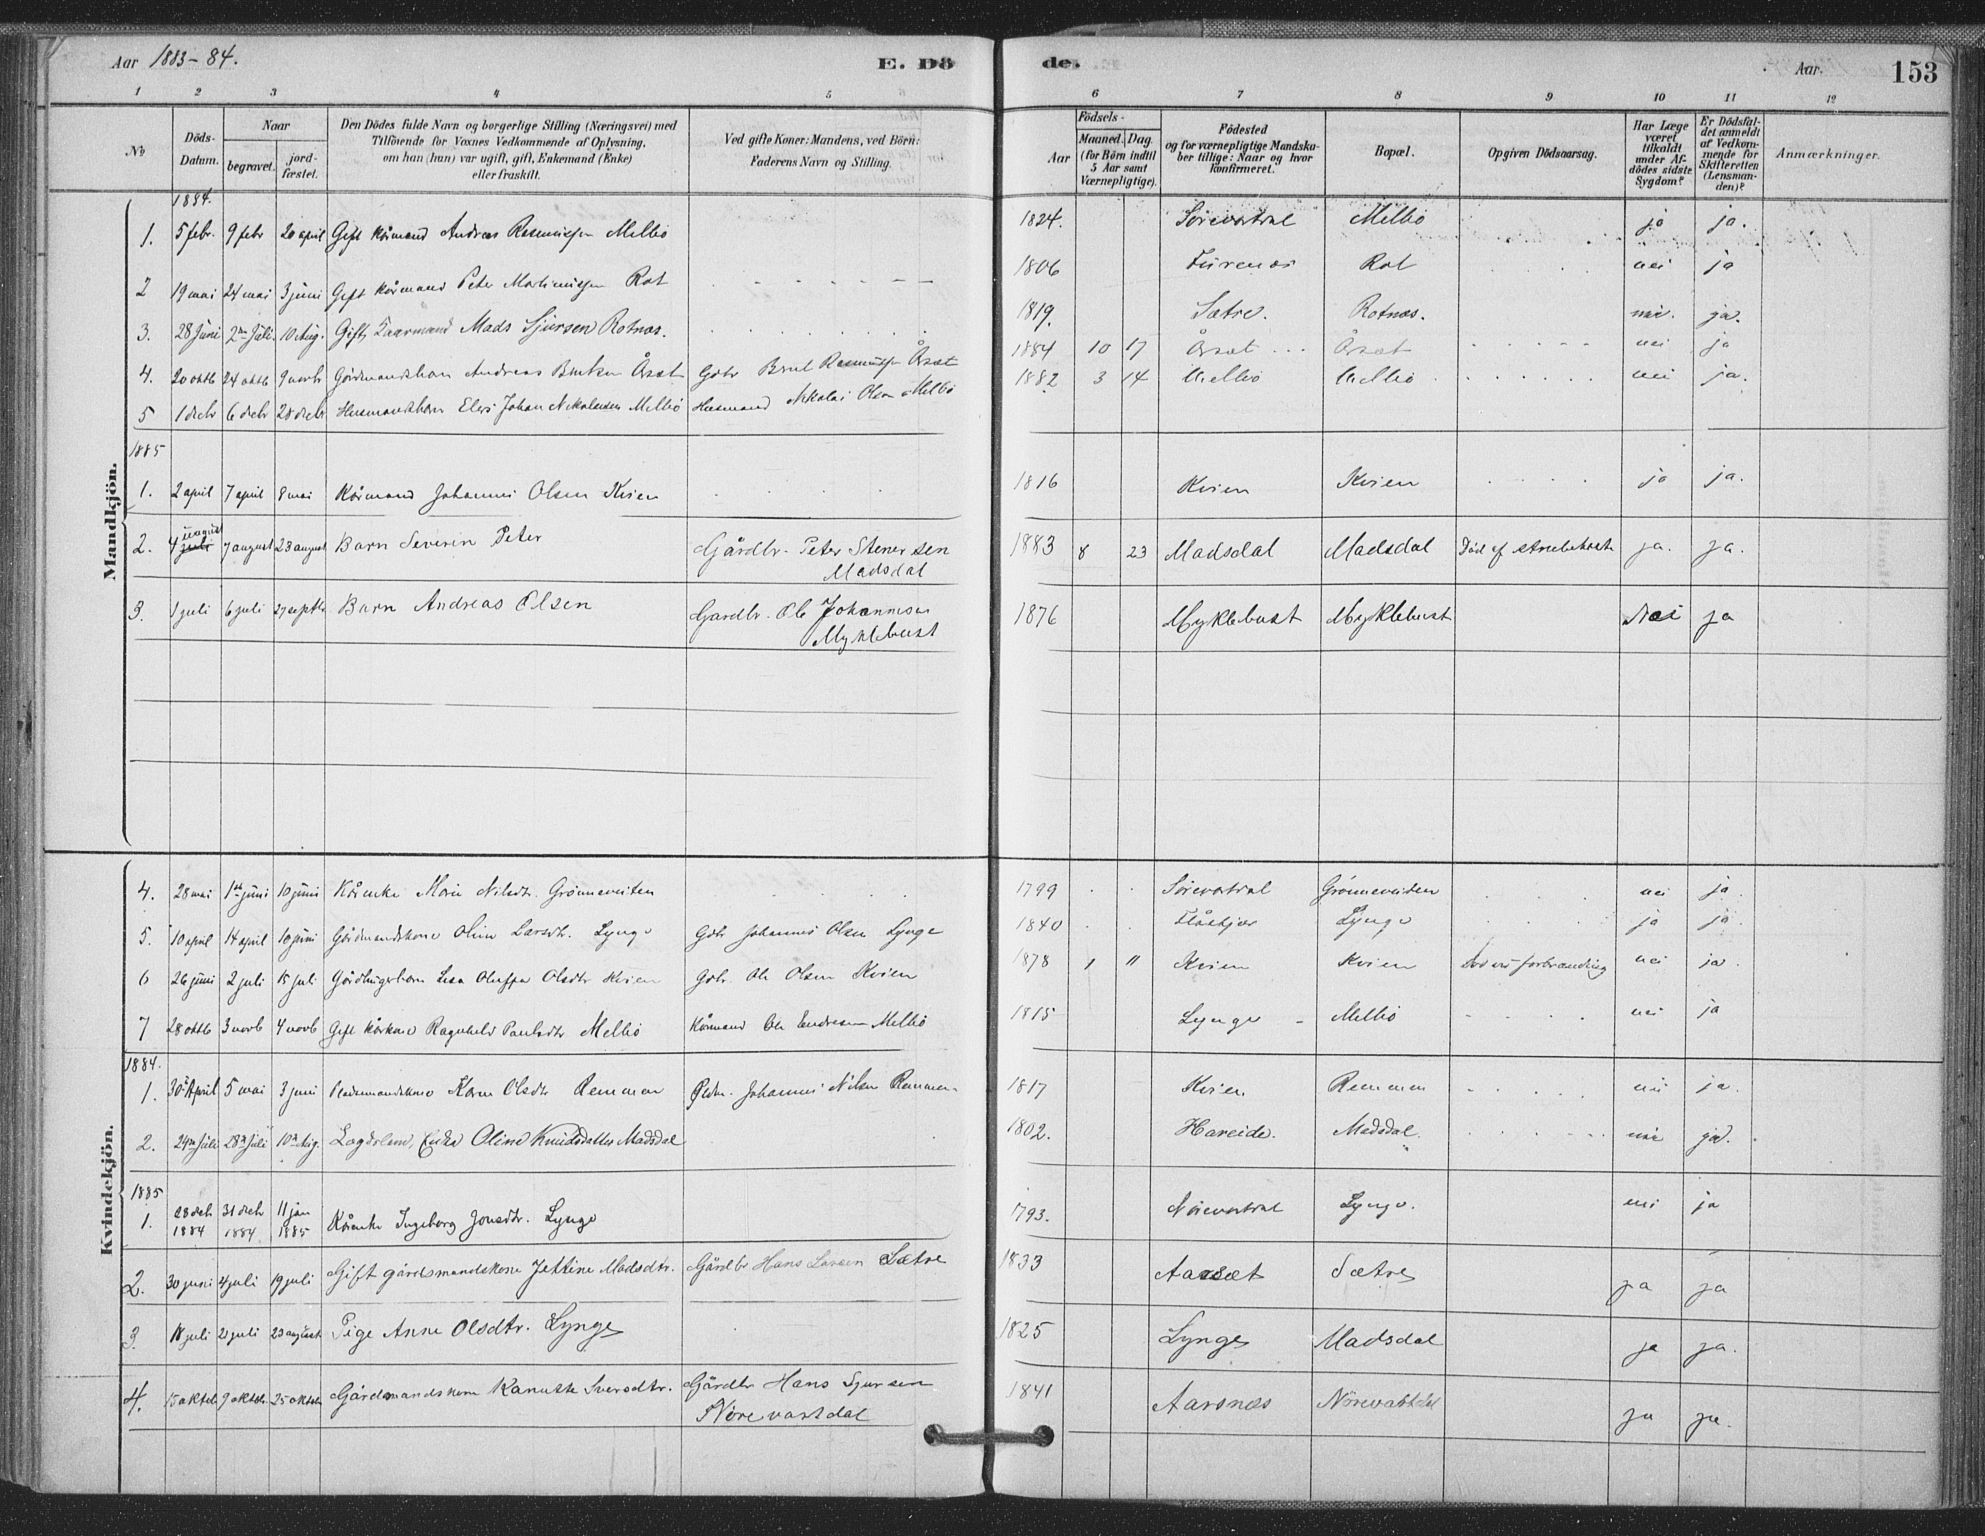 Aar 1883-84.
E. Dö
de.
Aar.
153
1 2 3 4 5 6
6 7 8 9 10 11 12
No
Döds-Datum.
Naar
begravet.
jord-fæstet.
Den Dödes fulde Navn og borgerlige Stilling (Næringsvei) med
Tilföiende for Voxnes Vedkommende af Oplysning,
om han (hun) var ugift, gift, Enkemand (Enke)
eller fraskilt.
Ved gifte Koner: Mandens, ved Börn:
Faderens Navn og Stilling.
Födsels-
Aar
Maaned.
Dag.
(for Börn indtil
5 Aar samt
Værnepligtige).
Födested
og for værnepligtige Mandska-
ber tillige: Naar og hvor
konfirmeret.
Bopæl.
Opgiven Dödsaarsag.
Har Læge
været
tilkaldt
under Af-
dödes sidste
Sygdom?
Er Dödsfal-
det anmeldt
af Vedkom-
mende for
Skifteretten
(Lensman-
den)?
Anmærkninger.
Mandkjön.
1884.
1. 5 febr. 9 febr 20 april Gift Kårmand Andreas Rasmussen Melbö 1824. Sörevartdal Melbö ja ja.
2 19 mai 24 mai 3 juni Gift Kårmand Peter Martinussen Rot 1806 Furenæs Rot nei ja
3. 28 Juni 2 Juli 10 Aug. Gift Kaarmand Mads Sjursen Rotnæs. 1819. Sætre. Rotnæs. nei. ja.
4. 20 oktb 24 oktb 9 novb Gårdmandsbarn Andreas Årsæt Gdbr Rasmussen Årsæt 1884 10 17 Årsæt Årsæt nei ja
5 1 decb 6 decb 28 decb Husmandsbarn Johan Nikolaisen Melbö Husmand Nikolai Olsen Melbö 1882 3 14 Melbö Melbö nei ja.
1885
1. 2 april 7 april 8 mai Kårmand Johannes Olsen Kvien 1816 Kvien Kvien ja ja.
2. 4 juli august 7 august 23 august Barn Severin Peter Gårdbr. Peter Stenersen Madsdal 1883 8 23 Madsdal Madsdal Död af strubehoste ja. ja.
3. 1 juli 6 juli 27 septbr Barn Andreas Olsen Gardbr. Ole Johannesen Myklebust 1876 Myklebust Myklebust Nei ja
Kvindekjön.
4. 28 mai 1 juni 10 juni Kårenke Marie Nilsdtr. Grönneveiten 1799 Sörevartdal Grönneveiten nei ja
5. 10 april 14 april 10 juni Gårdmandskone Oline Larsdtr. Lynge Gdbr Johannes Olsen Lynge 1840 Flåskjær Lynge ja ja
6 26 juni 2 juli 15 juli Lisa Oluffa Olsdtr Kvien Gdbr. Ole Olsen Kvien 1878 1 11 Kvien Kvien Död ved forbrænding nei ja.
7 28 oktb 3 novb 4 novb Gift Kårkone Ragnhild Paulsdtr Melbö Kårmand Ole Endresen Melbö 1815 Lynge Melbö nei ja
1884.
1. 30 April 5 mai 3 juni Pladsmandskone Karen Olsdtr Remmen Pldm. Johannes Nilsen Remmen 1817 Kvien Remmen nei ja.
2. 24 Juli 28 Juli 10 Aug. Lægdslem, Enke Oline Knudsdatter Madsdal 1802. Hareide. Madsdal. nei ja.
1885
1. 28 decb 1884 31 decb 1884 11 jan 1885 Kårenke Ingeborg Jonsdtr. Lynge 1793. Nörevartdal Lynge. nei ja
2. 30 juni 4 juli 19 juli Gift gårdsmandskone Jettine Madsdtr. Gårdbr Hans Larsen Sætre 1833 Aarsæt Sætre ja ja
3. 18 juli 21 juli 23 august Pige Anne Olsdtr. Lynge 1825 Lynge Madsdal ja ja.
4. 15 oktob 9 oktob. 25 oktob Gårdsmandskone Kanutte Iversdtr. Gårdbr Hans Sjursen Nörevartdal 1841 Aarsnæs Nörevartdal ja ja.